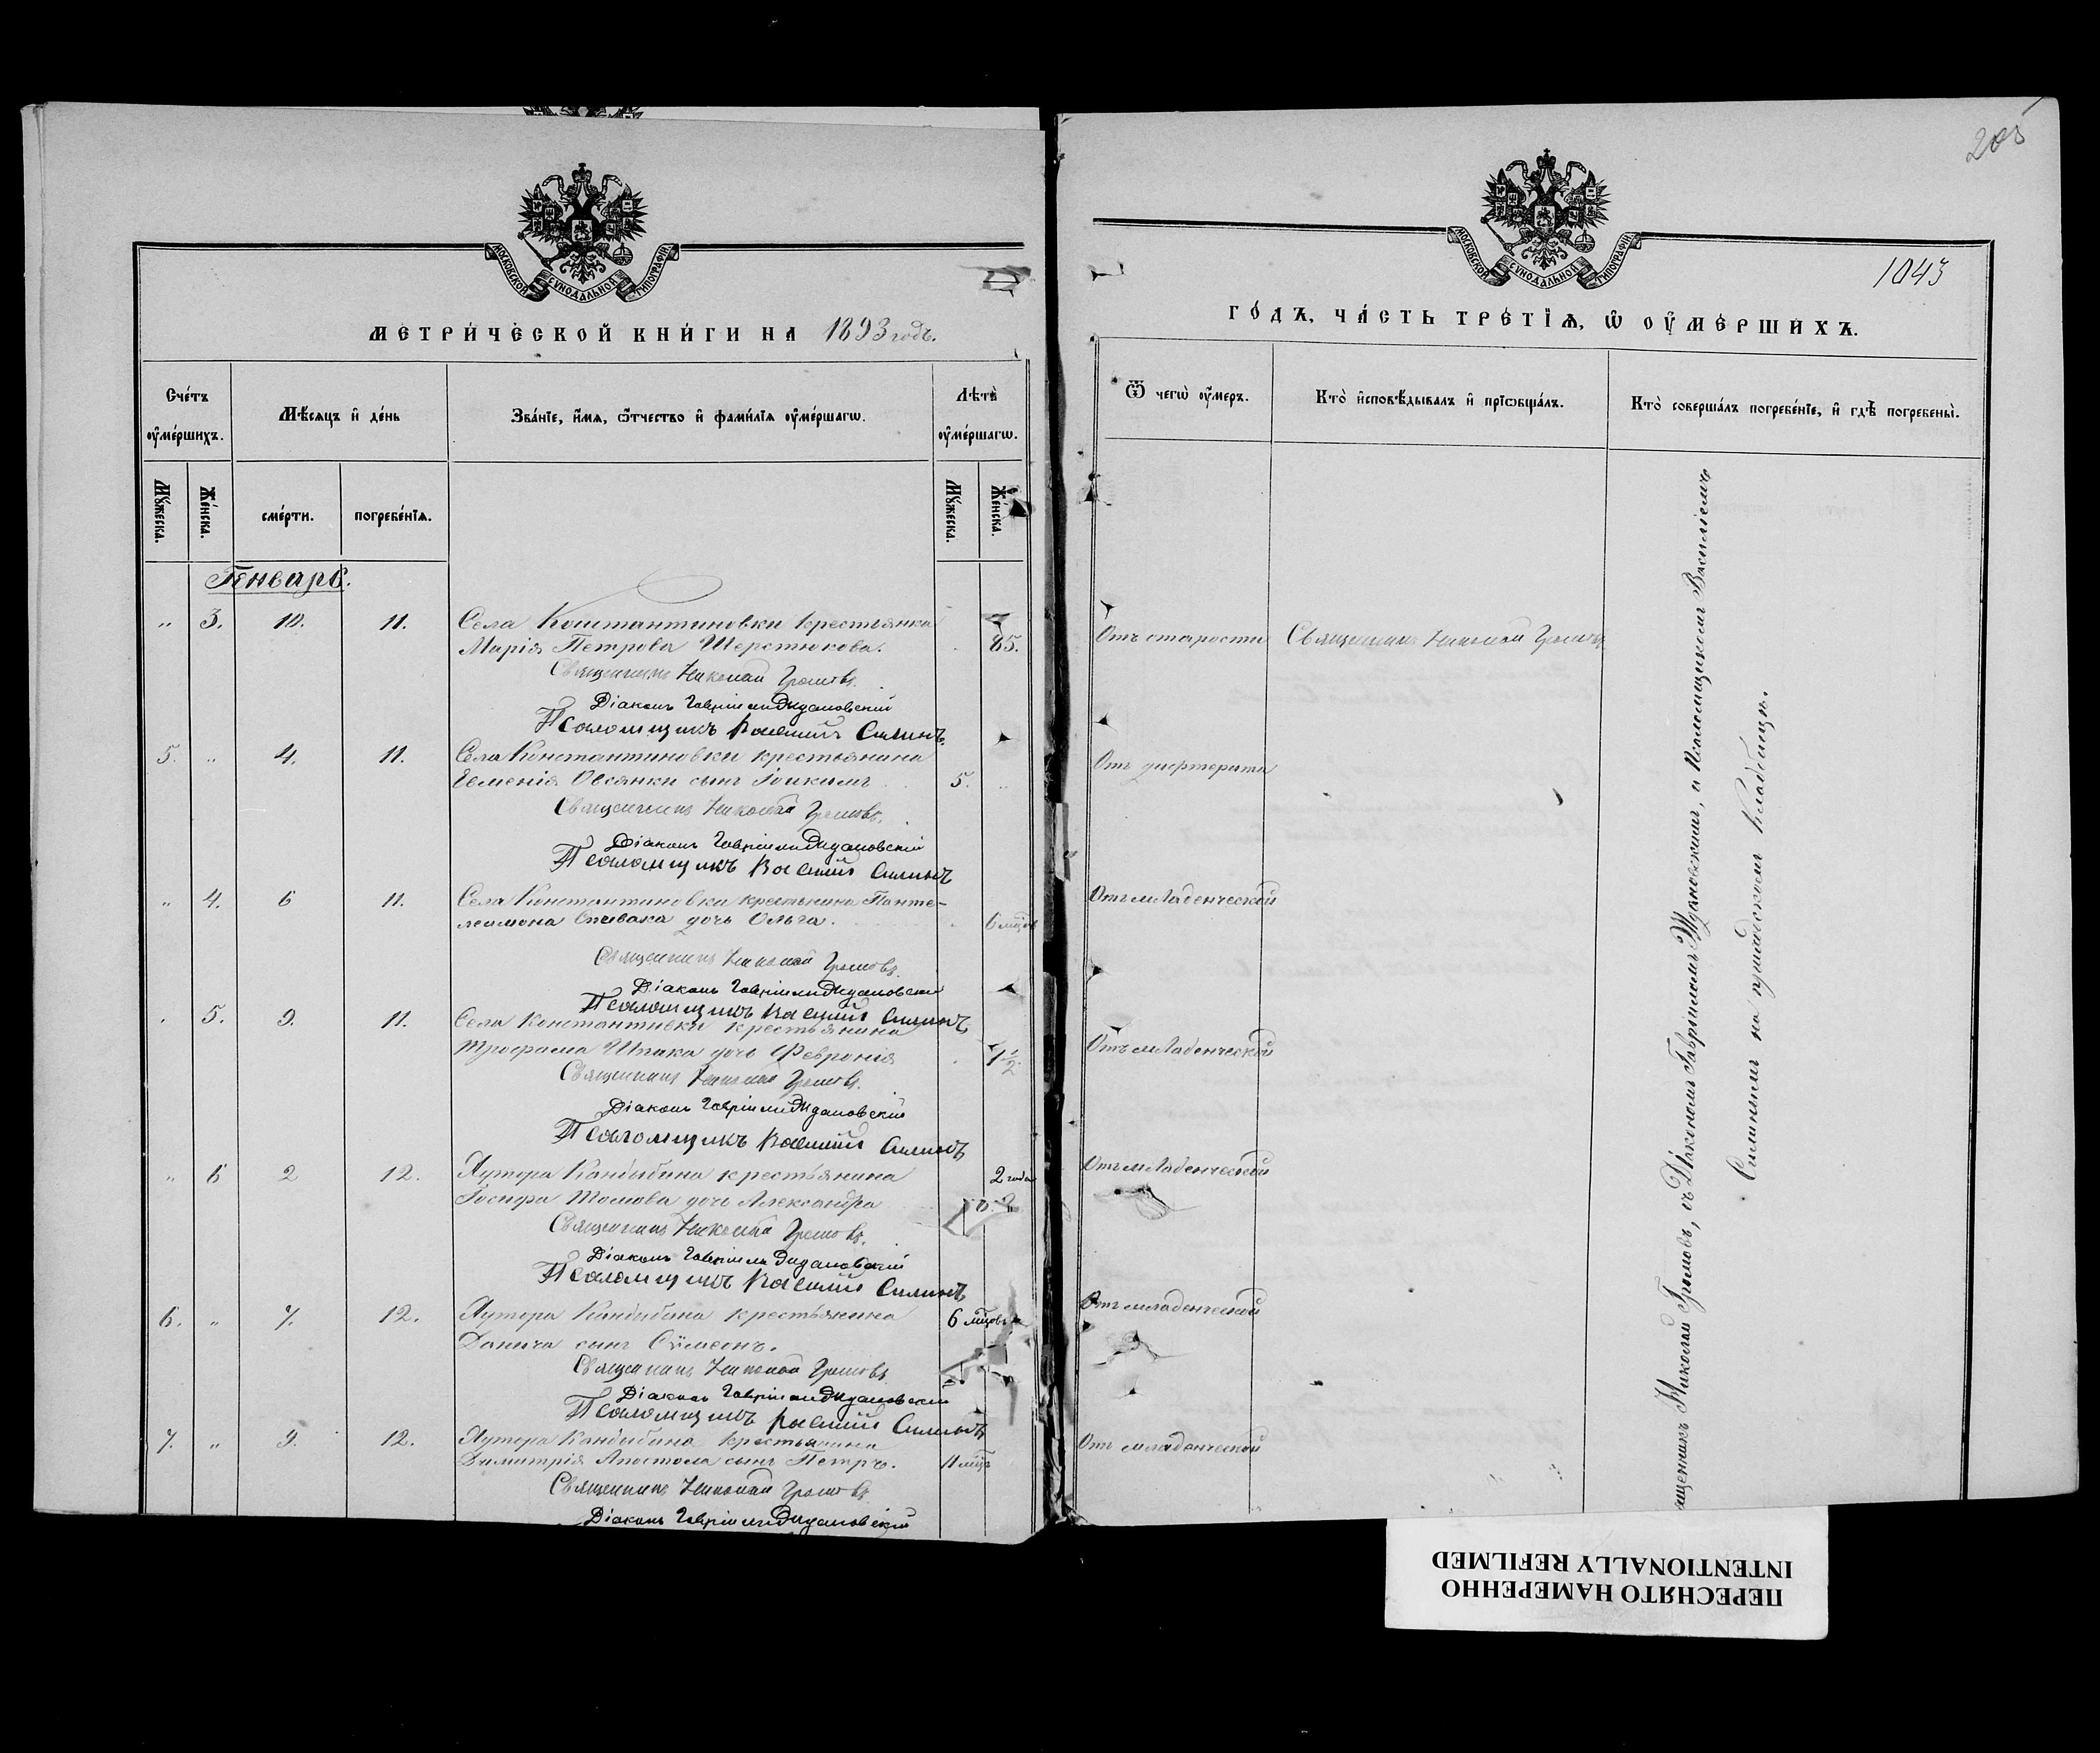 205
1043
МОСКОВСКОЙ СѴНОДАЛЬНОЙ ТИПОГРАФІИ
МЕТРИЧЕСКОЙ КНИГИ НА 1893 годъ.
Счетъ оумершихъ.
Мѣсяцъ и день
Званіе, имя, ѿтчество и фамилія оумершагѡ.
Лѣта оумершагѡ.
Мужеска.
Женска.
смерти.
погребенія.
Мужеска.
Женска.
Генварь.
" 3. 10. 11. Села Константиновки крестьянка
Марія Петрова Шерстюкова. 85.
Священникъ Николай Громовъ.
Діаконъ Гавріилъ Ждановскій
Псаломщикъ Василій Силинъ.
5. " 4. 11. Села Константиновки крестьянина
Евменія Овсянки сынъ Іоакимъ 5. "
Священникъ Николай Громовъ.
Діаконъ Гавріилъ Ждановскій
Псаломщикъ Василій Силинъ
" 4. 6 11. Села Константиновки крестьянина Панте-
леимона Спивака дочь Ольга. 6 мѣцовъ
Священникъ Николай Громовъ.
Діаконъ Гавріилъ Ждановскій
Псаломщикъ Василій Силинъ
. 5. 9. 11. Села Константивки крестьянина
Трофима Шпака дочь Февронія 1 1/2
Священникъ Николай Громовъ.
Діаконъ Гавріилъ Ждановскій
Псаломщикъ Василій Силинъ
" 6 2 12. Хутора Кандыбина крестьянина 2 года
Іосифа Томова дочь Александра
Священникъ Николай Громовъ.
Діаконъ Гавріилъ Ждановскій
Псаломщикъ Василій Силинъ
6. " 7. 12. Хутора Кандыбина крестьянина 6 мѣцовъ
сынъ Сѵмеонъ.
Священникъ Николай Громовъ
Діаконъ Гавріилъ Ждановскій
Псаломщикъ Василій Силинъ
7. " 9. 12. Хутора Кандыбина крестьянина
Димитрія Апостола сынъ Петръ. 11 мѣц
Священникъ Николай Громовъ
Діаконъ Гавріилъ Ждановскій
МОСКОВСКОЙ СѴНОДАЛЬНОЙ ТИПОГРАФІИ
ГОДЪ, ЧАСТЬ ТРЕТІЯ, Ѡ ОУМЕРШИХЪ.
Ѿ чегѡ оумеръ.
Кто исповѣдывалъ и пріѡбщалъ.
Кто совершалъ погребеніе, и гдѣ погребены.
Отъ старости Священникъ Николай Громовъ
Отъ дифтерита
Отъ младенческой
Отъ младенческой
Отъ младенческой
Отъ младенческой
Отъ младенческой
щенникъ Николай Громовъ, съ Діакономъ Гавріиломъ Ждановскимъ, и Псаломщикомъ Василіемъ
Силинымъ на приходскомъ кладбищѣ.
ПЕРЕСНЯТО НАМЕРЕННО
INTENTIONALLY REFILMED